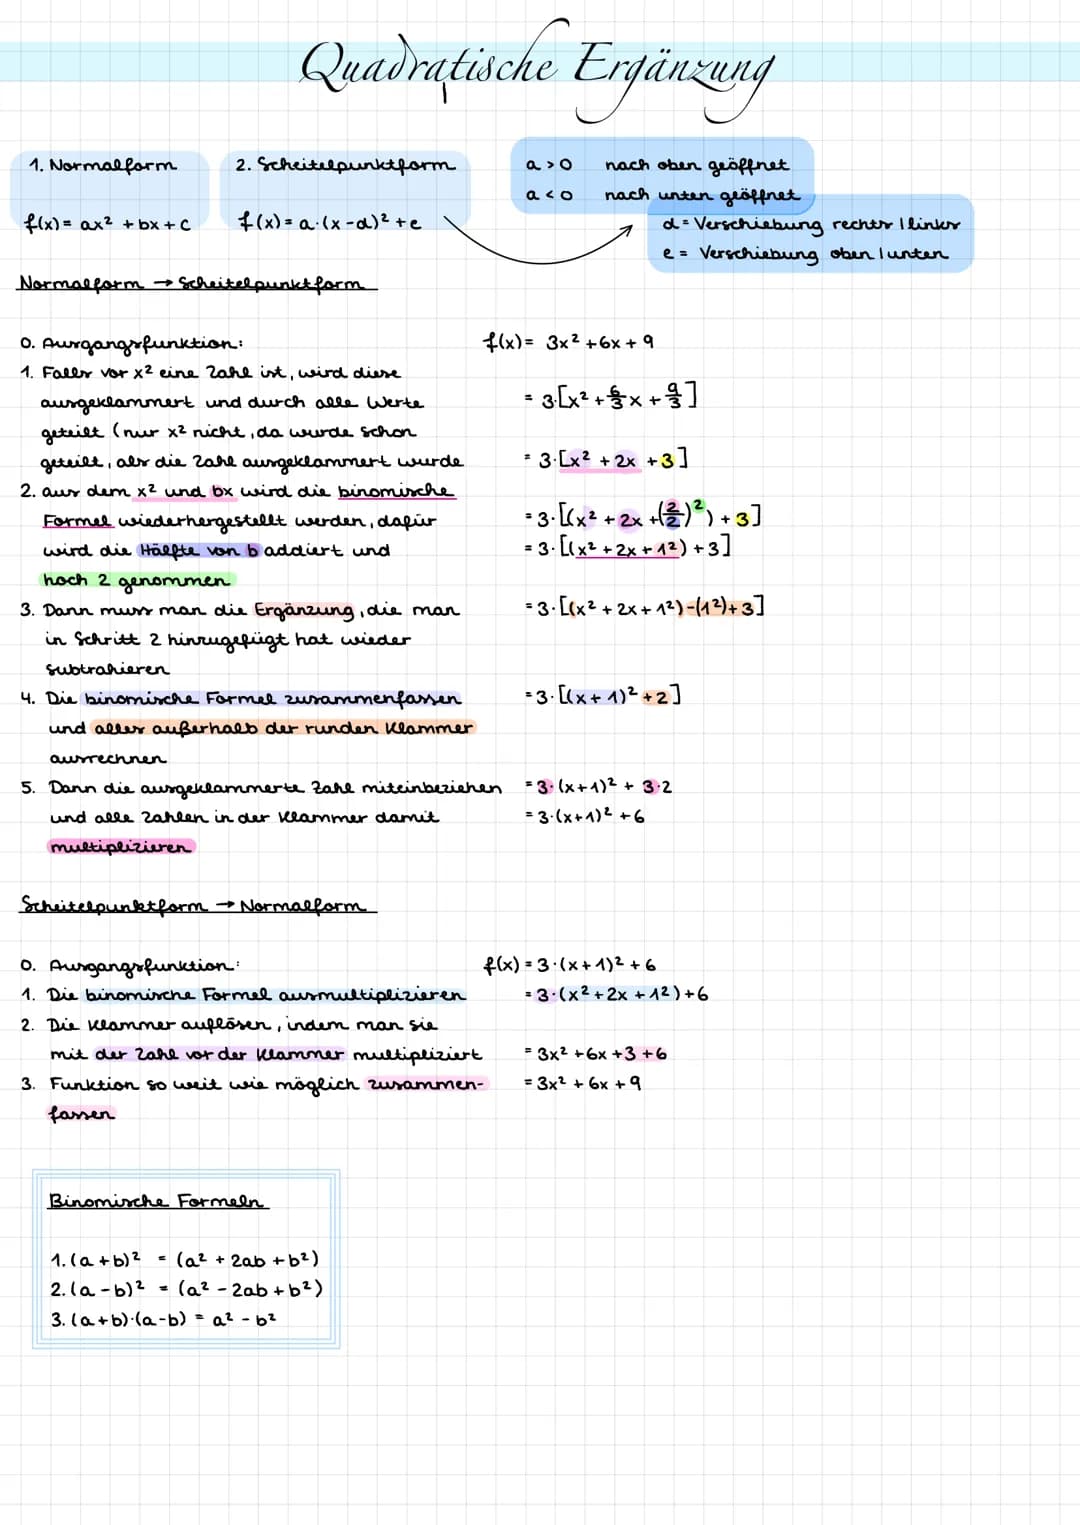 Quadratische Ergänzung
1. Normalform
f(x) = ax² + bx + c
2. Scheitelpunktform
f(x) = a·(x-d)² + e
a > 0 nach oben geöffnet
a < 0 nach unten geöffnet
d = Verschiebung rechts / links
e = Verschiebung oben / unten
Normalform → Scheitelpunktform
0. Ausgangsfunktion: f(x) = 3x² + 6x + 9
1. Falls vor x² eine Zahl ist, wird diese
ausgeklammert und durch alle Werte = 3·[x² + 6/3 x + 9/3]
geteilt (nur x² nicht, da wurde schon
geteilt, als die Zahl ausgeklammert wurde = 3·[x² + 2x + 3]
2. aus dem x² und bx wird die binomische
Formel wiederhergestellt werden, dafür = 3·[(x² + 2x + (2/2)²) + 3]
wird die Hälfte von b addiert und = 3·[(x² + 2x + 1²) + 3]
hoch 2 genommen
3. Dann muss man die Ergänzung, die man = 3·[(x² + 2x + 1²) - (1²) + 3]
in Schritt 2 hinzugefügt hat wieder
subtrahieren
4. Die binomische Formel zusammenfassen = 3·[(x + 1)² + 2]
und alles außerhalb der runden Klammer
ausrechnen
5. Dann die ausgeklammerte Zahl miteinbeziehen = 3·(x+1)² + 3·2
und alle Zahlen in der Klammer damit = 3·(x+1)² + 6
multiplizieren
Scheitelpunktform → Normalform
0. Ausgangsfunktion: f(x) = 3·(x+1)² + 6
1. Die binomische Formel ausmultiplizieren = 3·(x² + 2x + 1²) + 6
2. Die Klammer auflösen, indem man sie
mit der Zahl vor der Klammer multipliziert = 3x² + 6x + 3 + 6
3. Funktion so weit wie möglich zusammen- = 3x² + 6x + 9
fassen
Binomische Formeln
1. (a + b)² = (a² + 2ab + b²)
2. (a - b)² = (a² - 2ab + b²)
3. (a + b)·(a - b) = a² - b²